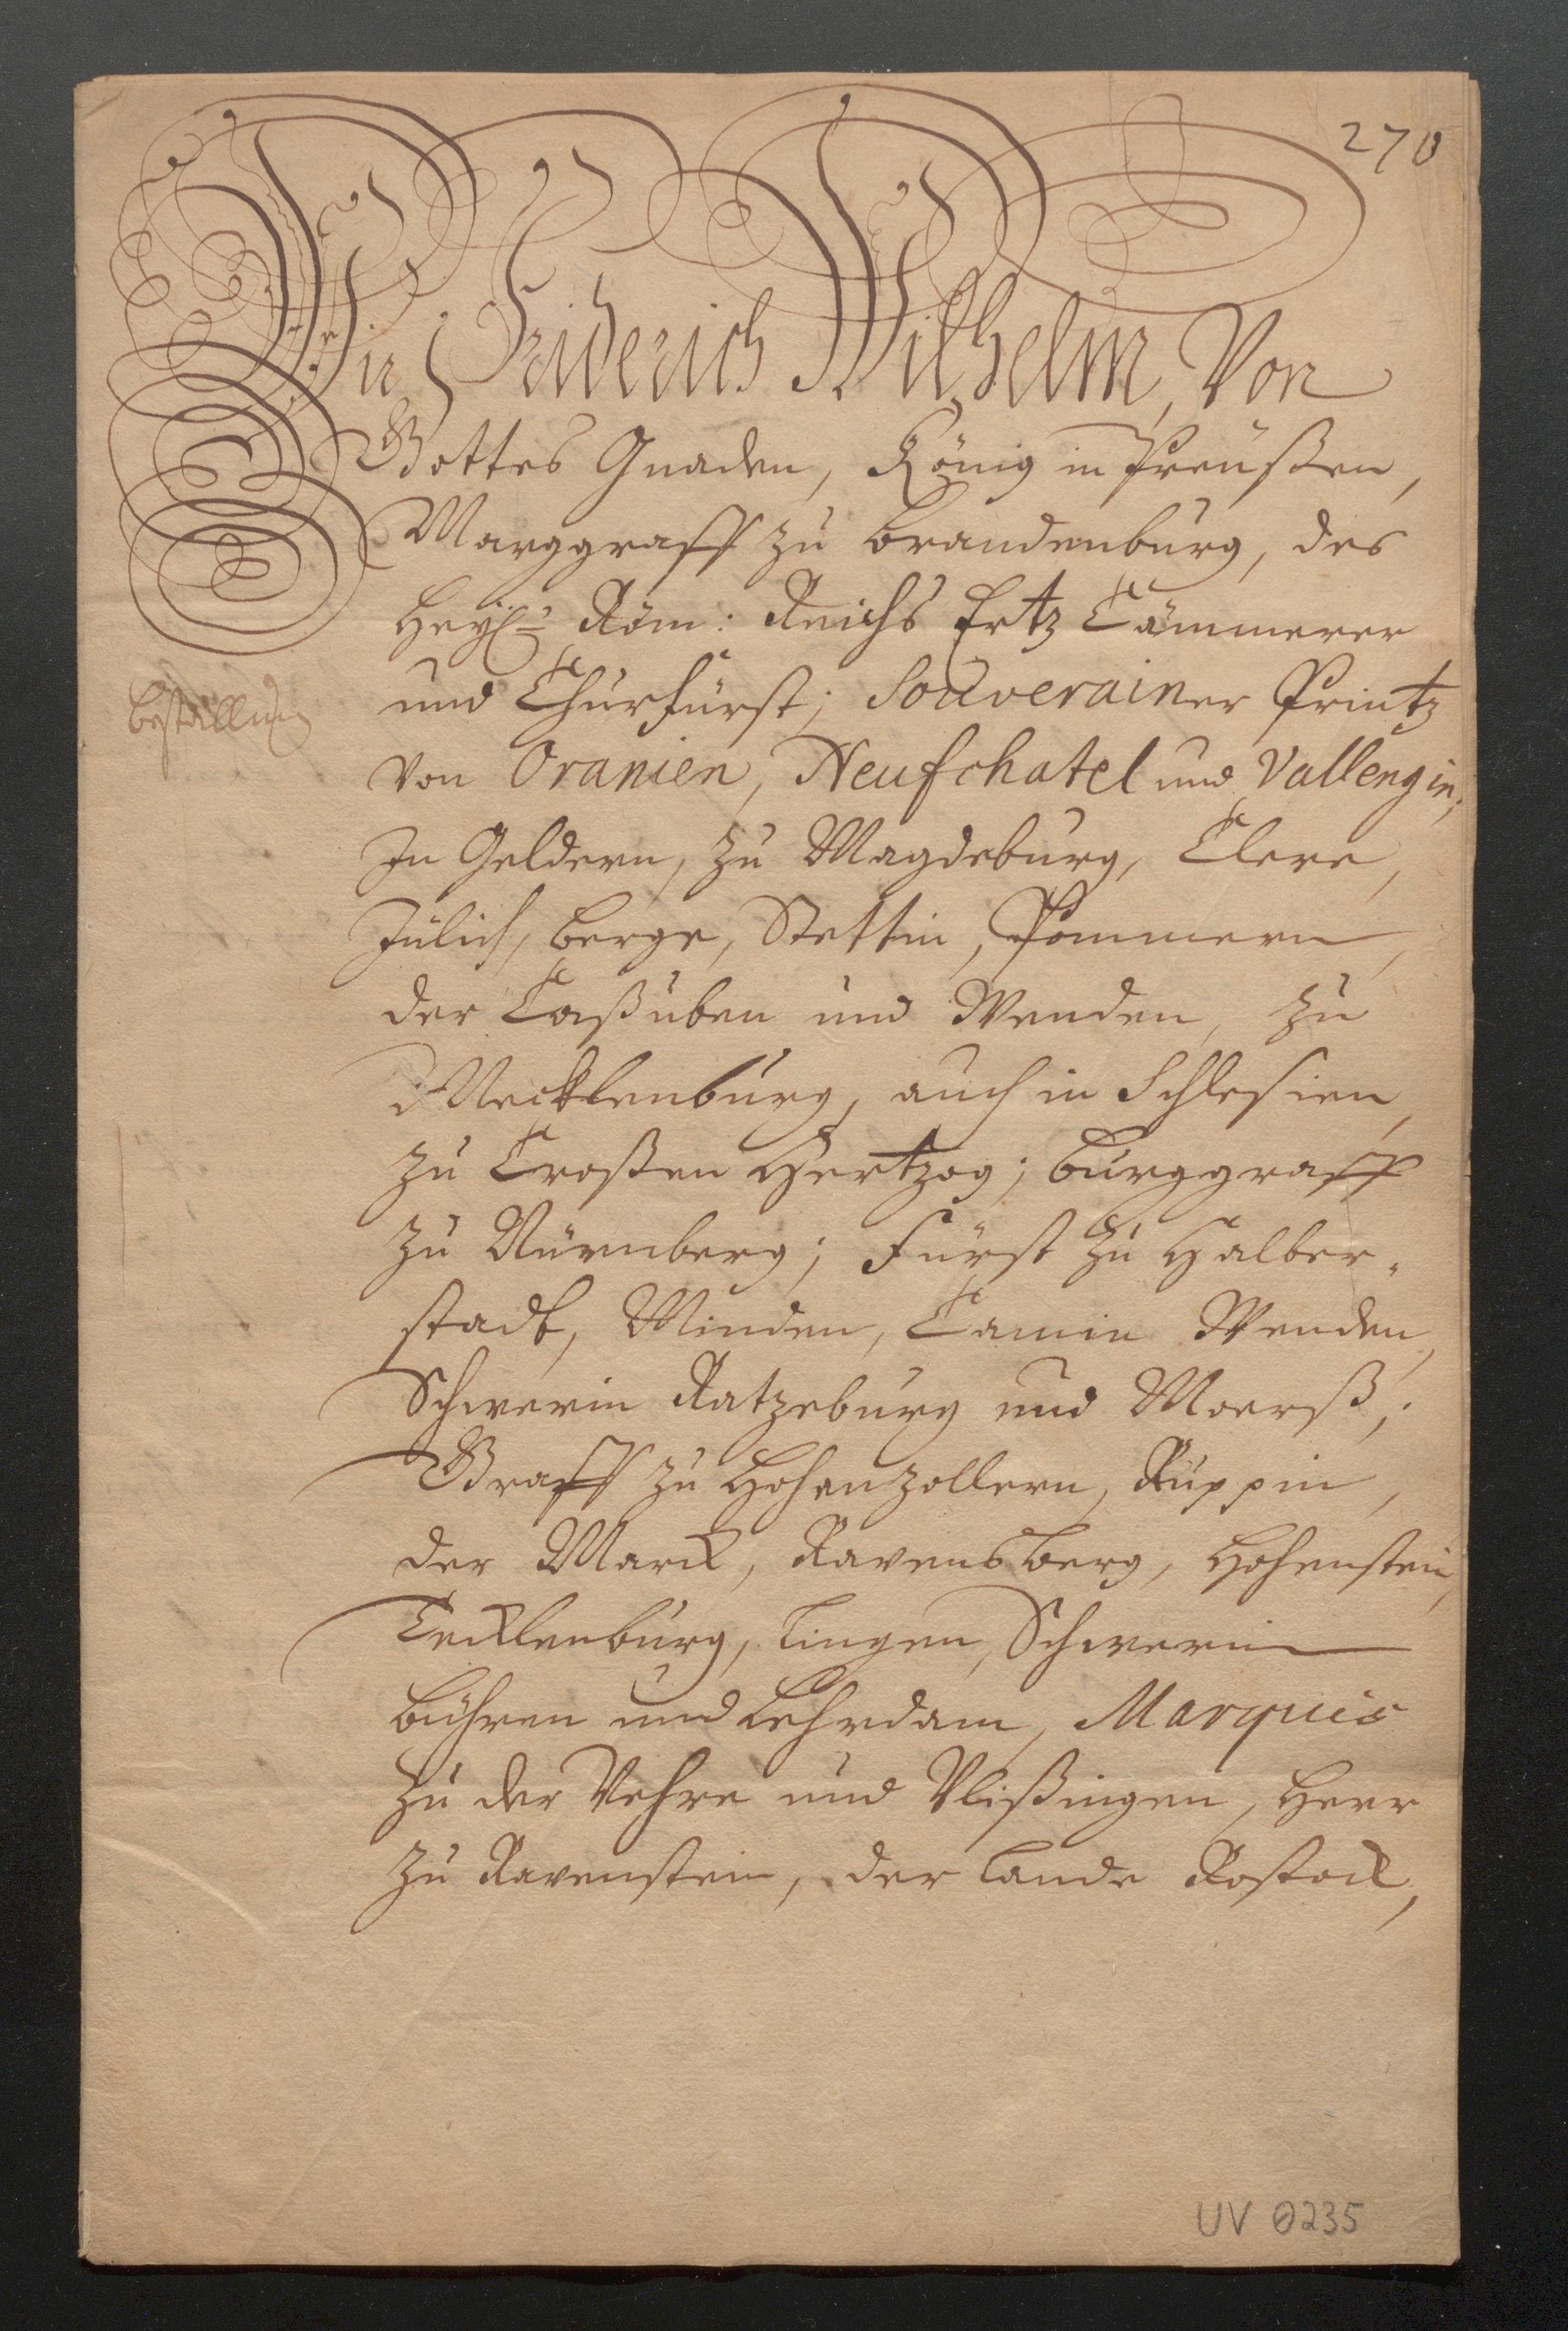 270
Wir Friderich Wilhelm, Von
Gottes Gnaden, König in Preußen,
Marggraff zu Brandenburg, des
Heyl: Röm: Reichs Ertz Cämmerer
und Churfürst; Souverainer Printz
von Oranien, Neufchatel und Vallengin;
In Geldern, zu Magdeburg, Cleve,
Jülich, Berge, Stettin, Pommern,
der Caßuben und Wenden, zu
Mecklenburg, auch in Schlesien,
zu Croßen Hertzog; Burggraff
zu Nürnberg; Fürst zu Halber-
stadt, Minden, Camin Wenden,
Schwerin Ratzeburg und Moerß;
Graff zu Hohenzollern, Ruppin,
der Marck, Ravensberg, Hohenstein,
Tecklenburg, Lingen, Schwerin
Bühren und Lehrdam, Marquis
zu der Vehre und Vlißingen, Herr
zu Ravenstein, der Lande Rostock,
Bestallung
UV 0235